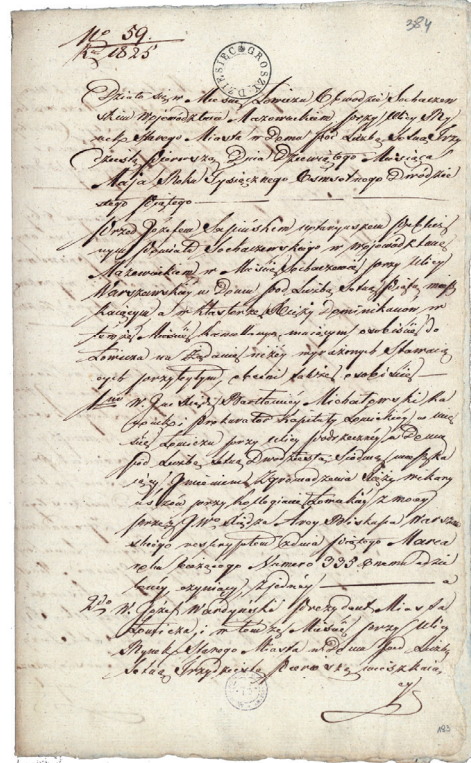 384
No 59.
Ru 1825
DZIESIĘĆ GROSZY
Działo się w Mieście Łowiczu Obwodzie Sochaczew
skim Województwie Mazowieckim przy Ulicy Ry
nek Starego Miasta w Domu pod Liczbą Sto Trzy
dziestą Pierwszą Dnia Dziewiątego Miesiąca
Maja Roku Tysiącznego Ośmsetnego Dwudzie
stego Piątego
Przed Józefem Notaryuszem Publicz
nym Powiatu Sochaczewskiego w Województwie
Mazowieckiem w Mieście Sochaczewie przy Ulicy
Warszawskiey w Domu pod Liczbą
a w Klasztorze Xięży Dominikanów w
temże Mieście Kancellaryą maiącym osobiście do
Łowicza na żądanie niżey wyrażonych Stawaią
cych przybyłym, obecni także osobiście
1mo W. Jmć Xiądz Bartłomiey Michałowski Ka
nonik i Prokurator Kapituły Łowickiey w mie
ście Łowiczu przy Ulicy Podrzeczney w Domu
pod Liczbą Dwudziestą Siódmą
Imieniem Zgromadzenia Xięży Wikary
uszów przy Kollegiacie Łowickiey z mocy
przez JWo Xiędza Arcy Biskupa Warszaw
skiego reskryptem z dnia Piątego Marca
roku bieżącego Numero 335
czyniący, z jedney a
2do W. Józef Wardyński Prezydent Miasta
Łowicza, i w temże Mieście przy Ulicy
Rynek Starego Miasta w Domu pod Liczbą
Trzydziestą Pierwszą mieszkaią
cy